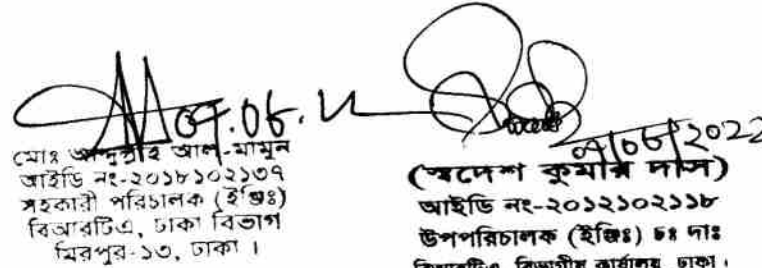 ০৭.০৬.২২
মোঃ আব্দুল্লাহ আল-মামুন
আইডি নং-২০১৮১০২১৩৭
সহকারী পরিচালক (ইঞ্জিঃ)
বিআরটিএ, ঢাকা বিভাগ
মিরপুর-১৩, ঢাকা ।
০৭/০৬/2022
(স্বদেশ কুমার দাস)
আইডি নং-২০১২১০২১১৮
উপপরিচালক (ইঞ্জিঃ) চঃ দাঃ
বিআরটিএ, বিভাগীয় কার্যালয়, ঢাকা ।